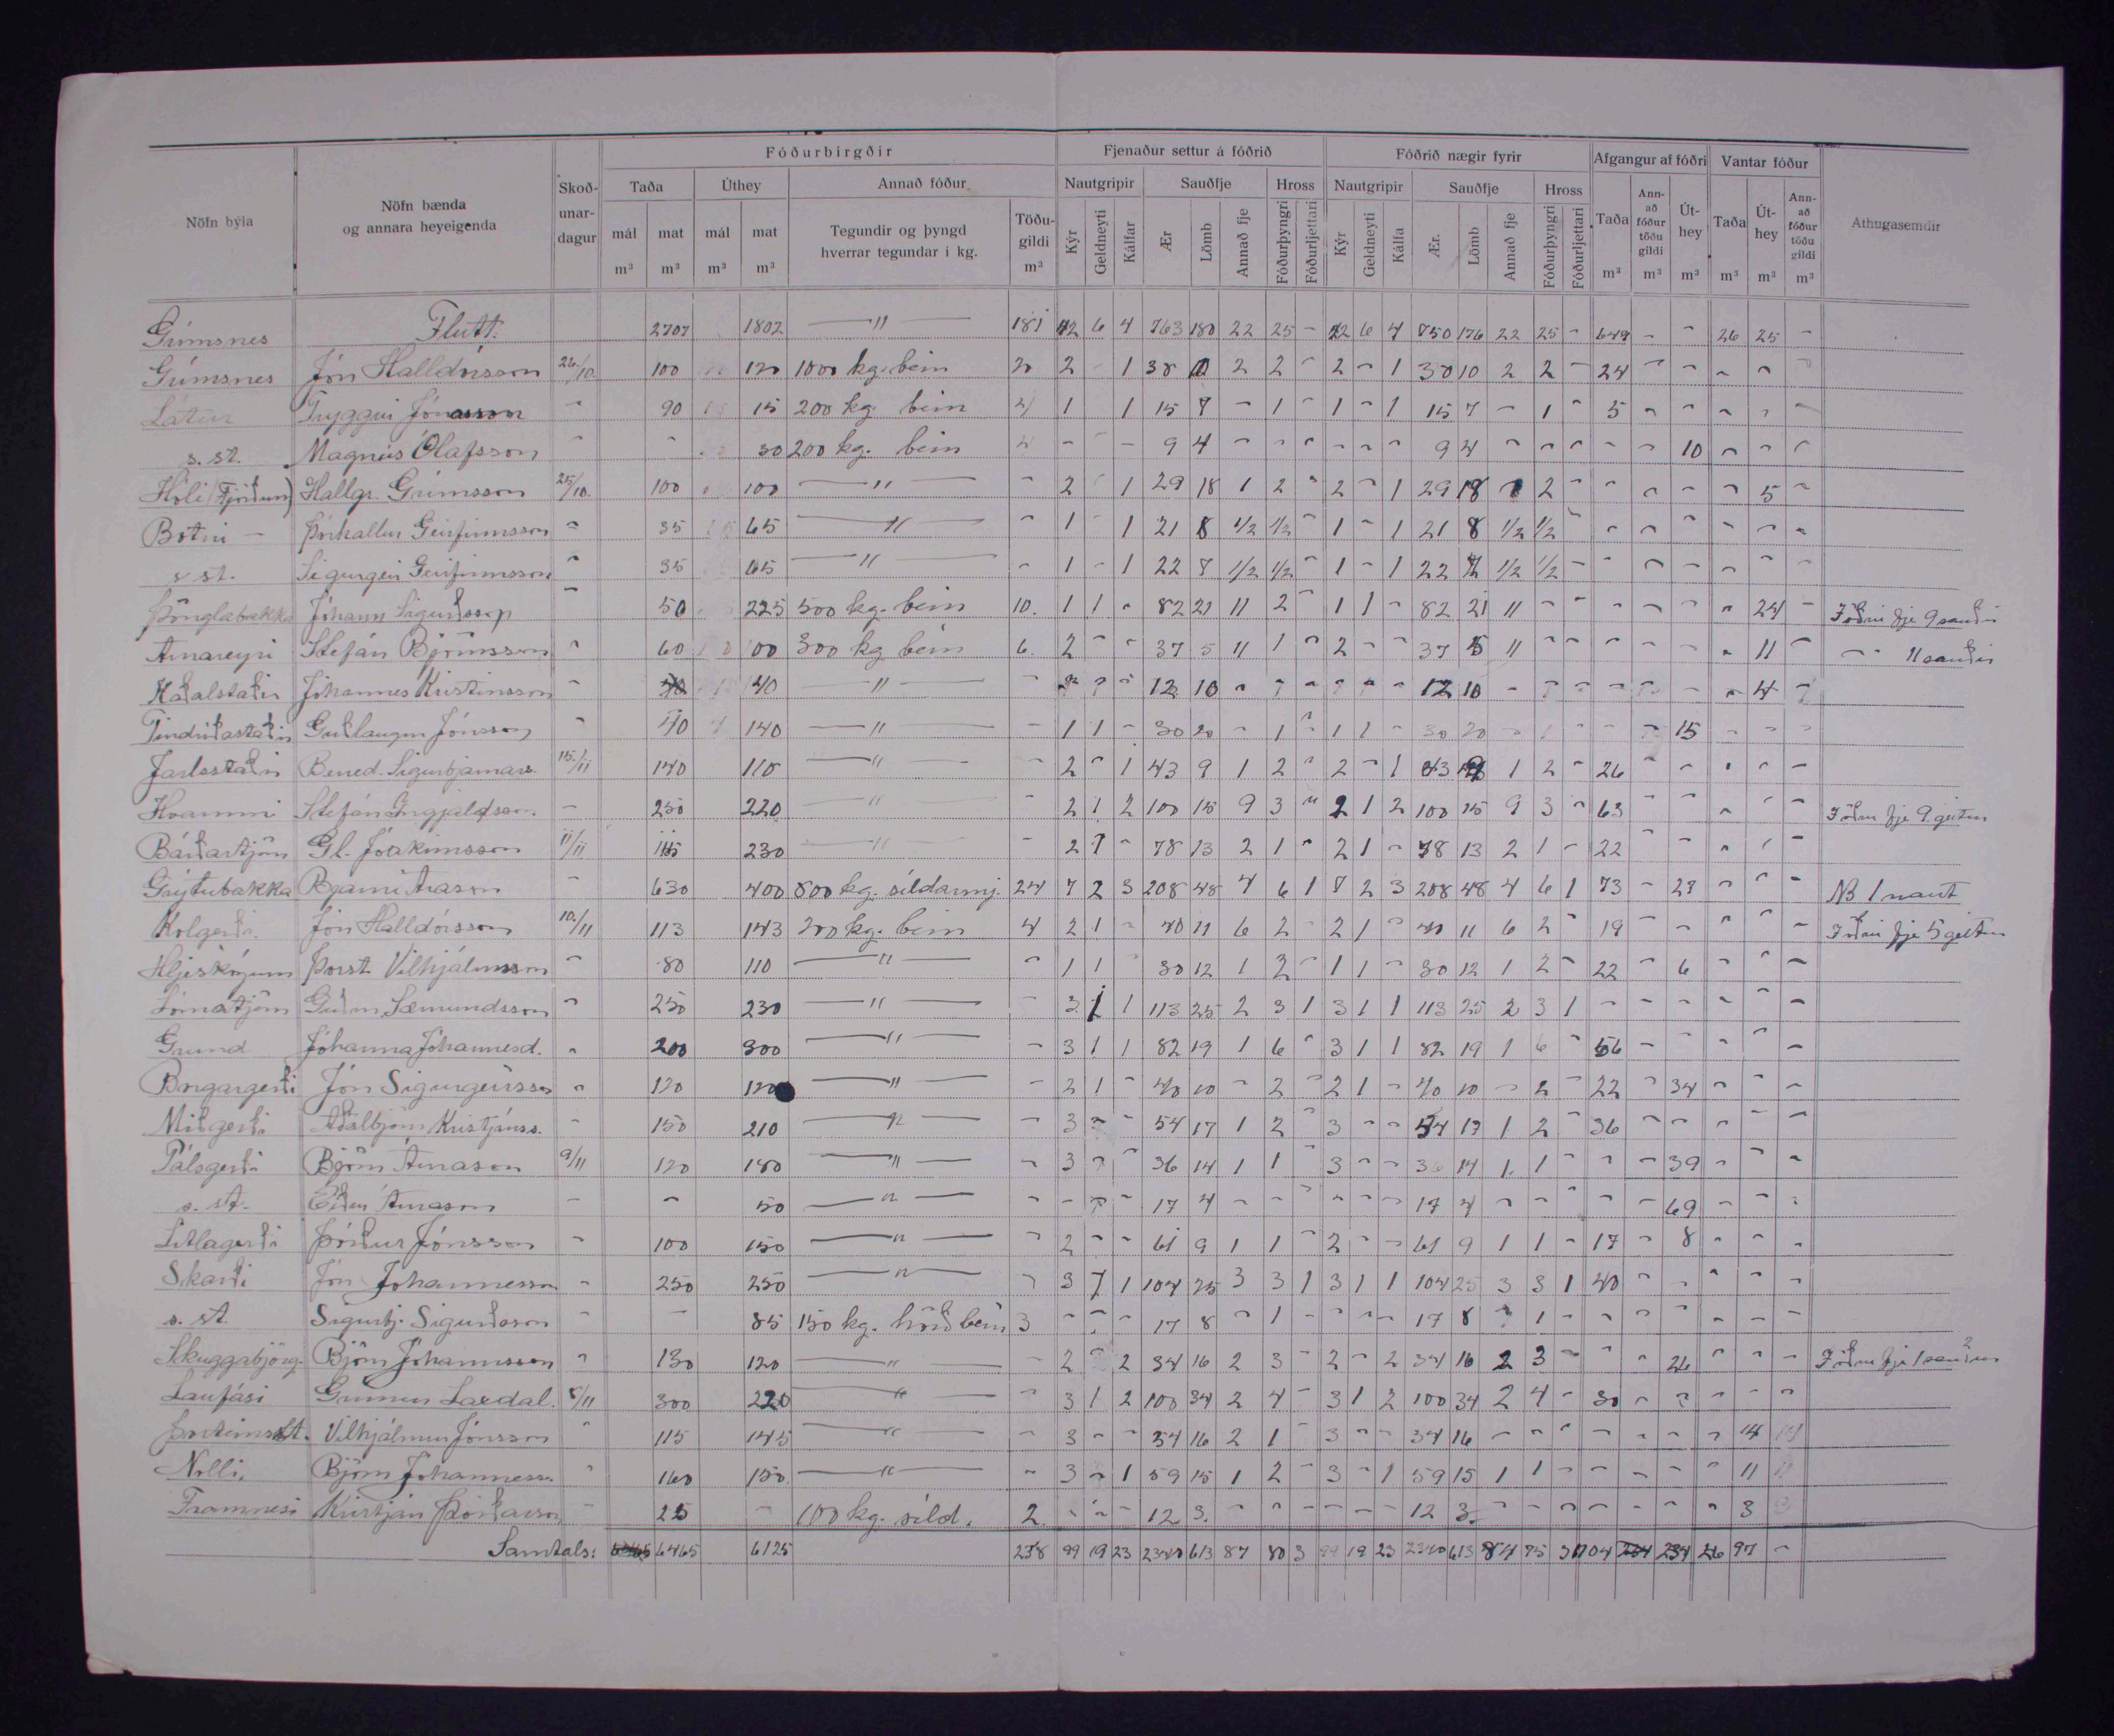 Fóðurbirgðir Fjenaður settur á fóðrið Fóðrið nægir fyrir Afgangur af fóðri Vantar fóður
Nöfn býla Nöfn bænda og annara heyeigenda Skoð-unar-dagur Taða Úthey Annað fóður Nautgripir Sauðfje Hross Nautgripir Sauðfje Hross Taða Ann-að fóður töðu gildi Út-hey Taða Út-hey Ann-að fóður töðu gildi Athugasemdir
mál m³ mat m³ mál m³ mat m³ Tegundir og þyngd hverrar tegundar í kg. Töðu-gildi m³ Kýr Geldneyti Kálfar Ær Lömb Annað fje Fóðurþyngri Fóðurljettari Kýr Geldneyti Kálfa Ær. Lömb Annað fje Fóðurþyngri Fóðurljettari m³ m³ m³ m³ m³ m³
Grímsnes Flutt: 2707 1802 — " — 181 42 6 4 763 180 22 25 - 42 6 4 750 176 22 25 - 649 - - 26 25 -
Grímsnes Jón Halldórsson 26/10. 100 120 1000 kg. bein 20 2 1 38 10 2 2 - 2 - 1 38 10 2 2 - 24 - - - -
Látur Tryggvi Jónasson - 90 15 200 kg. bein 4 1 1 15 7 - 1 - 1 - 1 15 7 - 1 - 5 - - - - -
s. st. Magnús Ólafsson - - 30 200 kg. bein 4 - - - 9 4 - - - - - - 9 4 - - - - - 10 - - -
Hóli (Fjörðum) Hallgr. Grímsson 25/10. 100 100 — " — - 2 1 29 18 1 2 - 2 - 1 29 18 1 2 - - - - - 5 -
Botni — Þórhallur Geirfinnsson - 35 65 — " — - 1 - 1 21 8 1/2 1/2 - 1 - 1 21 8 1/2 1/2 - - - - - - -
s st. Sigurgeir Geirfinnsson - 35 65 — " — - 1 - 1 22 7 1/2 1/2 - 1 - 1 22 7 1/2 1/2 - - - - - - -
Þönglabakka Jóhann Sigurðsson - 50 225 500 kg. bein 10. 1 1 - 82 21 11 2 - 1 1 - 82 21 11 - - - - - - 24 - Í öðru fje 9 sauðir
Arnareyri Stefán Björnsson - 60 100 300 kg bein 6. 2 - - 37 5 11 1 - 2 - - 37 5 11 - - - - - - 11 - - " 11 sauðir
Kaðalstaðir Jóhannes Kristinsson - 40 — " — - - - - 12 10 - - - - - - 12 10 - - - - - - - 4 -
Tindriðastaðir Guðlaugur Jónsson - 70 140 — " — - 1 1 - 30 20 - 1 - 1 1 - 30 20 - 1 - - - 15 - - -
Jarlsstaðir Bened. Sigurbjarnars. 15./11 140 110 — " — - 2 - 1 43 9 1 2 - 2 - 1 43 9 1 2 - 26 - - - - -
Hvammi Stefán Ingjaldsson. - 250 220 — " — - 2 1 2 100 15 9 3 " 2 1 2 100 15 9 3 - 63 - - - - - Í öðru fje 9 geitur
Bárðartjörn Gl. Jóakimsson 11/11 115 230 — " — - 2 1 - 78 13 2 1 - 2 1 - 78 13 2 1 - 22 - - - - -
Grýtubakka Bjarni Arason - 630 400 800 kg. síldarmj. 24 7 2 3 208 48 4 6 1 7 2 3 208 48 4 6 1 73 - 27 - - - NB 1 naut
Kolgerði. Jón Halldórsson 10./11 113 143 200 kg. bein 4 2 1 - 40 11 6 2 - 2 1 - 40 11 6 2 - 19 - - - - - Í öðru fje 5 geitur
Hljeskógum Þorst. Vilhjálmsson - 80 110 — " — - 1 1 30 12 1 2 - 1 1 - 30 12 1 2 - 22 - 6 - - -
Lómatjörn Guðm. Sæmundsson - 250 230 — " — - 3 1 1 113 25 2 3 1 3 1 1 113 25 2 3 1 - - - - - -
Grund Jóhanna Jóhannesd. - 200 300 — " — - 3 1 1 82 19 1 6 - 3 1 1 82 19 1 6 - 56 - - - - -
Borgargerði Jón Sigurgeirsson - 120 120 — " — - 2 1 - 40 10 - 2 - 2 1 - 40 10 - 2 - 22 - 34 - - -
Miðgerði Aðalbjörn Kristjánss. - 150 210 — " — - 3 - - 54 17 1 2 - 3 - - 54 17 1 2 - 36 - - - - -
Pálsgerði Björn Árnason 9/11 120 180 — " — - 3 - - 36 14 1 1 3 - - 36 14 1. 1 - - - 39 - - -
s. st. Árnason - - 50 — " — - - - - 17 4 - - - - - - 17 4 - - - - - 69 - - -
Litlagerði Þórður Jónsson - 100 150 — " — - 2 - - 61 9 1 1 - 2 - - 61 9 1 1 - 17 - 8 - - -
Skarði Jón Jóhannesson - 250 250 — " — - 3 1 1 104 25 3 3 1 3 1 1 104 25 3 3 1 40 - - - - -
s. st. Sigurbj. Sigurðsson - - 85 150 kg. bein 3 - - - 17 8 - 1 - - - - 17 8 - 1 - - - - - - -
Skuggabjörg. Björn Jóhannsson - 130 120 — " — - 2 - 2 34 16 2 3 - 2 - 2 34 16 2 3 - - - 26 - - - Í öðru fje 1 sauður
Laufási Gunnur Laxdal. 8/11 300 220 — " — - 3 1 2 100 34 2 4 - 3 1 2 100 34 2 4 - 30 - - - - -
Þorsteinsst. Vilhjálmur Jónsson - 115 145 — " — - 3 - - 34 16 2 1 - 3 - - 34 16 - - - - - - - 14
Nolli, Björn Jóhanness. - 160 150 — " — - 3 - 1 59 15 1 2 - 3 - 1 59 15 1 1 - - - - - 11
Framnesi Kristján Þórðarson - 25 - 100 kg. síld. 2. - - - 12 3. - - - - - - 12 3. - - - - - - - 3
Samtals: 6465 6125 238 99 19 23 2340 613 87 80 3 99 19 23 2340 613 84 75 3 1704 234 26 97 -